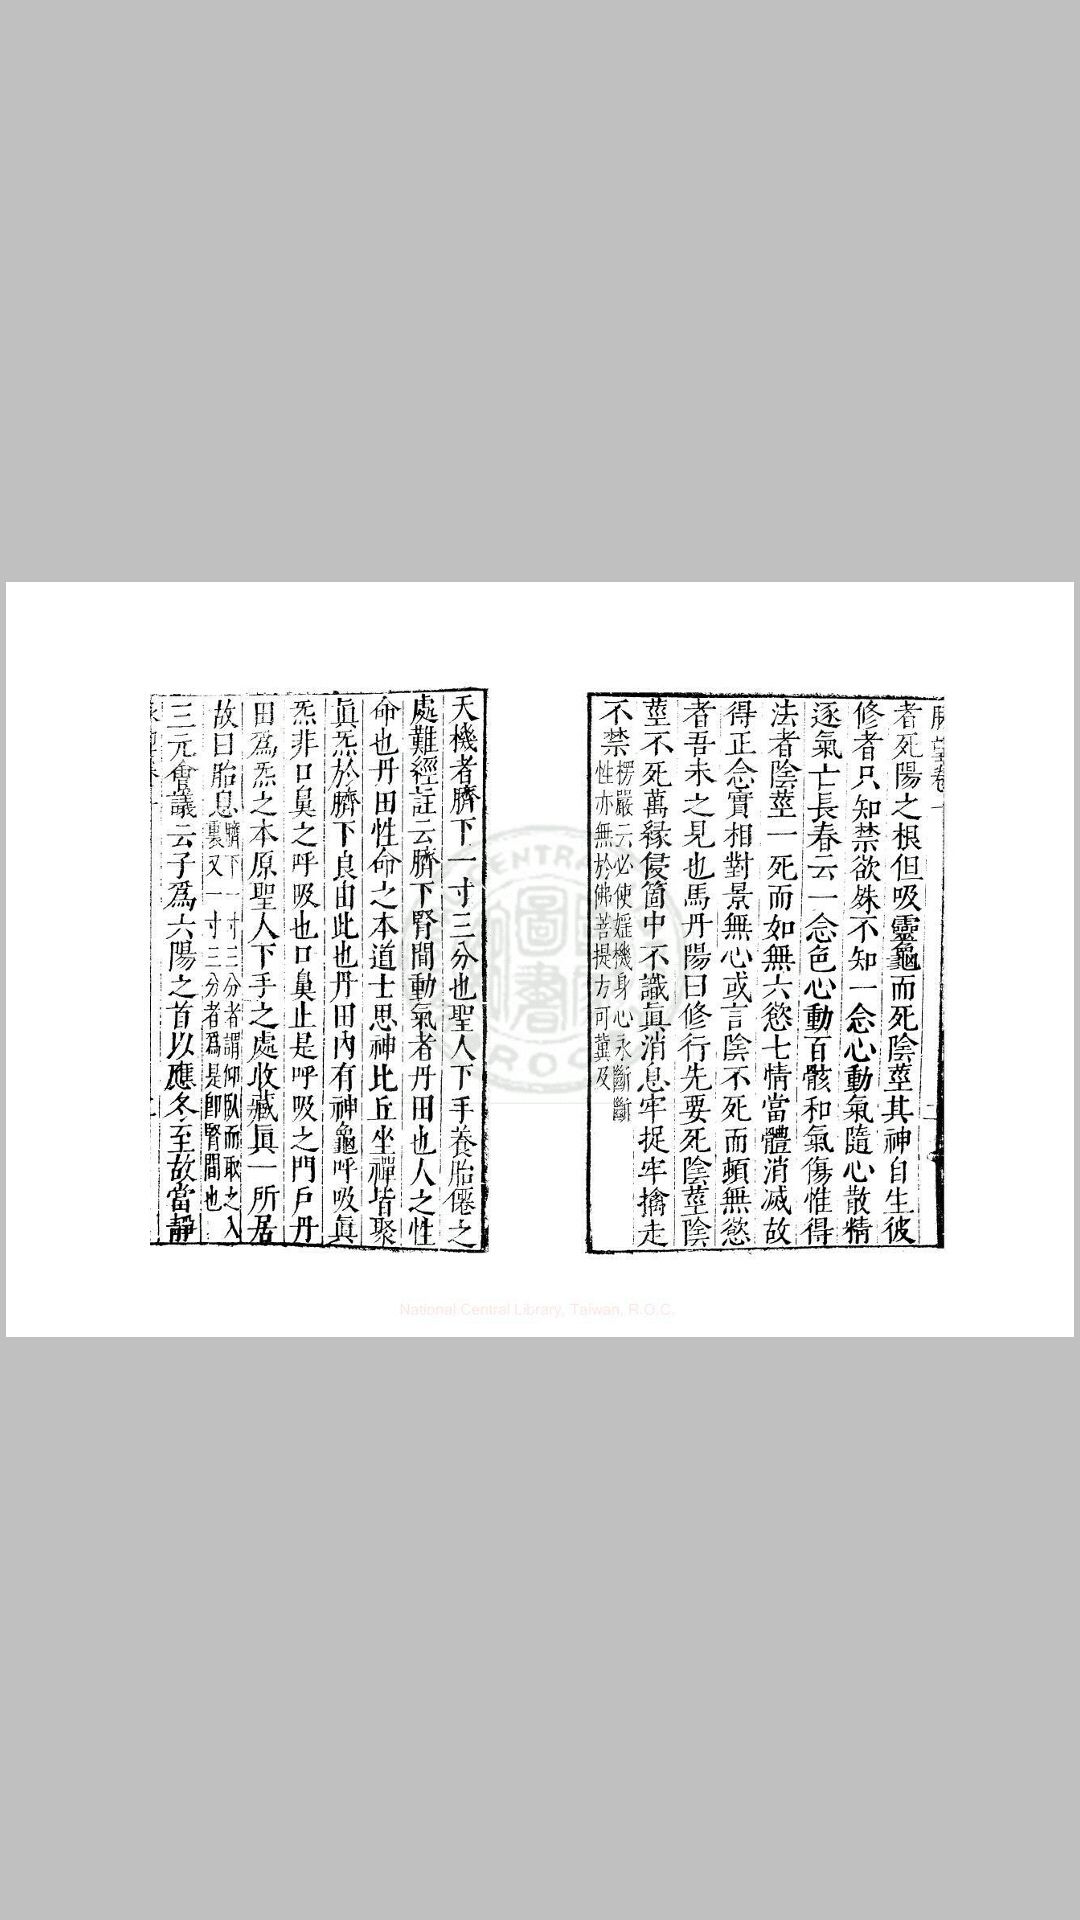 脉望卷一
者死陽之根但吸靈龜而死陰莖其神自生彼
修者只知禁欲殊不知一念心動氣隨心散精
逐氣亡長春云一念色心動百骸和氣傷惟得
法者陰莖一死而如無六慾七情當體消滅故
得正念實相對景無心或言陰不死而頓無慾
者吾未之見也馬丹陽曰修行先要死陰莖陰
莖不死萬緣侵箇中不識眞消息牢捉牢擒走
不禁楞嚴云必使婬機身心永斷斷
性亦無於佛菩提方可冀及
天機者臍下一寸三分也聖人下手養胎僊之
處難經註云臍下腎間動氣者丹田也人之性
命也丹田性命之本道士思神比丘坐禪皆聚
眞炁於臍下良由此也丹田內有神龜呼吸眞
炁非口鼻之呼吸也口鼻止是呼吸之門戶丹
田爲炁之本原聖人下手之處收藏眞一所居
故曰胎息臍下一寸三分者謂仰臥而取之入
裏又一寸三分者爲是卽腎間也
三元會議云子爲六陽之首以應冬至故當靜
CENTRA
圖
書
R.O.C
National Central Library, Taiwan, R.O.C.